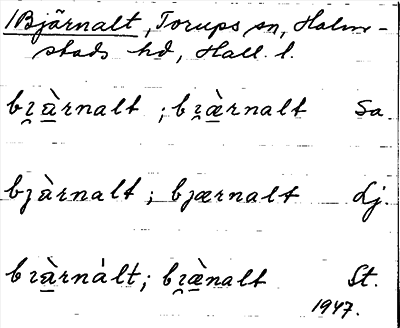 Bjärnalt, Torups sn, Halm-
stads hd, Hall. l.
bɿ̯à̲rnalt ; bɿ̯æ̲̀rnalt Sa.
bjàrnalt ; bjærnalt Lj.
bɿà̲rnàlt; bɿ̯æ̲̀nalt St.
1947.